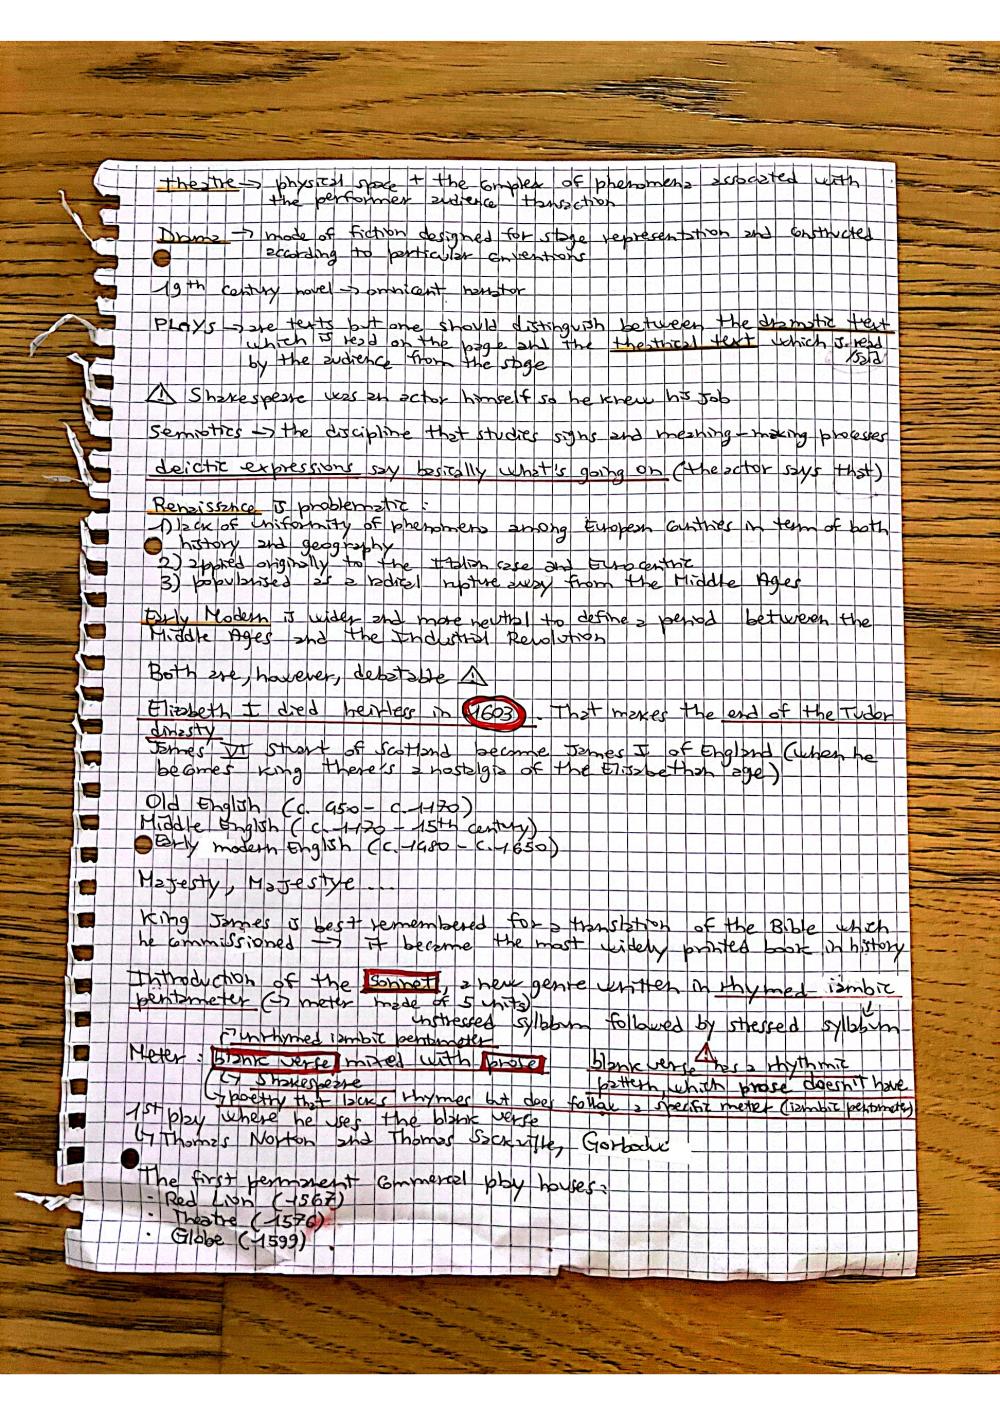 theatre → physical space + the complex of phenomena associated with
the performer audience transaction
Drama → mode of fiction designed for stage representation and constructed
according to particular conventions
19th century novel → omnicent narrator
PLAYS → are texts but one should distinguish between the dramatic text
which is read on the page and the theatrical text which is read
/said
by the audience from the stage
⚠ Shakespeare was an actor himself so he knew his job
Semiotics → the discipline that studies signs and meaning-making processes
deictic expressions say basically what's going on (the actor says that)
Renaissance is problematic:
1) lack of uniformity of phenomena among European countries in term of both
history and geography
2) applied originally to the Italian case and Eurocentric
3) popularised as a radical rupture away from the Middle Ages
Early Modern is wider and more neutral to define a period between the
Middle Ages and the Industrial Revolution
Both are, however, debatable ⚠
Elizabeth I died heirless in 1603. That makes the end of the Tudor
dinasty
James VI Stuart of Scotland become James I of England (when he
becomes king there's a nostalgia of the Elisabethan age)
Old English (c. 450 - c. 1170)
Middle English (c. 1170 - 15th century)
Early modern English (c. 1480 - c. 1650)
Majesty, Majestye ...
King James is best remembered for a translation of the Bible which
he commissioned → it became the most widely printed book in history
Introduction of the sonnet, a new genre written in rhymed iambic
pentameter (↳ meter made of 5 units)
unstressed syllabum followed by stressed syllabum
unrhymed iambic pentameter
Meter: blank verse mixed with prose
⚠ blank verse has a rhythmic
↳ Shakespeare
pattern, which prose doesn't have
↳ poetry that lacks rhymes but does follow a specific meter (iambic pentameter)
1st play where he uses the blank verse
↳ Thomas Norton and Thomas Sackville, Gorboduc
The first permanent commercal play houses:
· Red Lion (1567)
· Theatre (1576)
· Globe (1599)